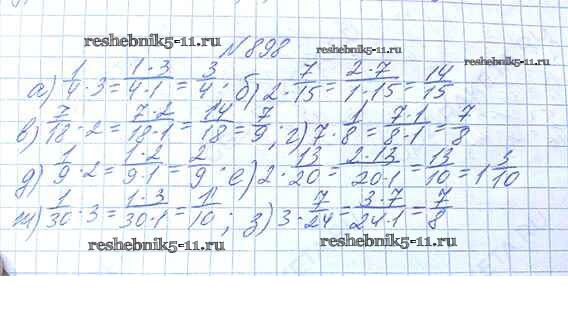 reshebnik5-11.ru
№898
reshebnik5-11.ru
а) 1/4 · 3 = 1·3/4·1 = 3/4; б) 2 · 7/15 = 2·7/1·15 = 14/15
в) 7/18 · 2 = 7·2/18·1 = 14/18 = 7/9; г) 7 · 1/8 = 7·1/8·1 = 7/8
д) 1/9 · 2 = 1·2/9·1 = 2/9; е) 2 · 13/20 = 2·13/20·1 = 13/10 = 1 3/10
ж) 1/30 · 3 = 1·3/30·1 = 1/10; з) 3 · 7/24 = 3·7/24·1 = 7/8
reshebnik5-11.ru
reshebnik5-11.ru